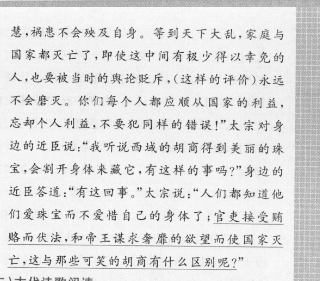 慧,祸患不会殃及自身。等到天下大乱,家庭与
国家都灭亡了,即使这中间有极少得以幸免的
人,也要被当时的舆论贬斥,(这样的评价)永远
不会磨灭。你们每个人都应顺从国家的利益,
忘却个人利益,不要犯同样的错误!”太宗对身
边的近臣说:“我听说西域的胡商得到美丽的珠
宝,会割开身体来藏它,有这样的事吗?”身边的
近臣答道:“有这回事。”太宗说:“人们都知道他
们爱珠宝而不爱惜自己的身体了;官吏接受贿
赂而伏法,和帝王谋求奢靡的欲望而使国家灭
亡,这与那些可笑的胡商有什么区别呢?”